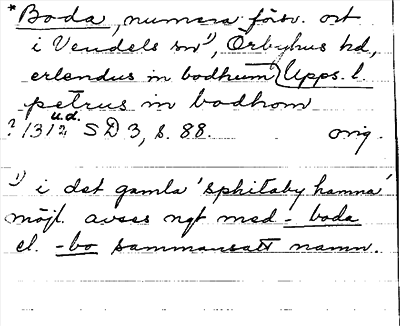 * Boda, numera förv. ort
i Vendels sn¹), Örbyhus hd,
erlendus in bodhum Upps. l.
petrus in bodhom
? 1312 u.d. SD 3, s. 88. orig.
¹) i det gamla 'sphitaby hamna'
möjl. avses ngt med -boda
el. -bo sammansatt namn.